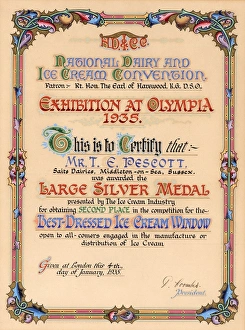 N.D.& I.C.C.
National Dairy and
Ice Cream Convention.
Patron:- Rt. Hon. The Earl of Harewood, K.G. D.S.O.
Exhibition at Olympia
1935.
This is to Certify that:-
Mr. T. E. Pescott,
Saits Dairies, Middleton-on-Sea, Sussex.
was awarded the
Large Silver Medal
presented by The Ice Cream Industry
for obtaining SECOND PLACE in the competition for the
Best-Dressed Ice Cream Window
open to all-comers engaged in the manufacture or
distribution of Ice Cream
Given at London this 4th.
day of January, 1935.
President.